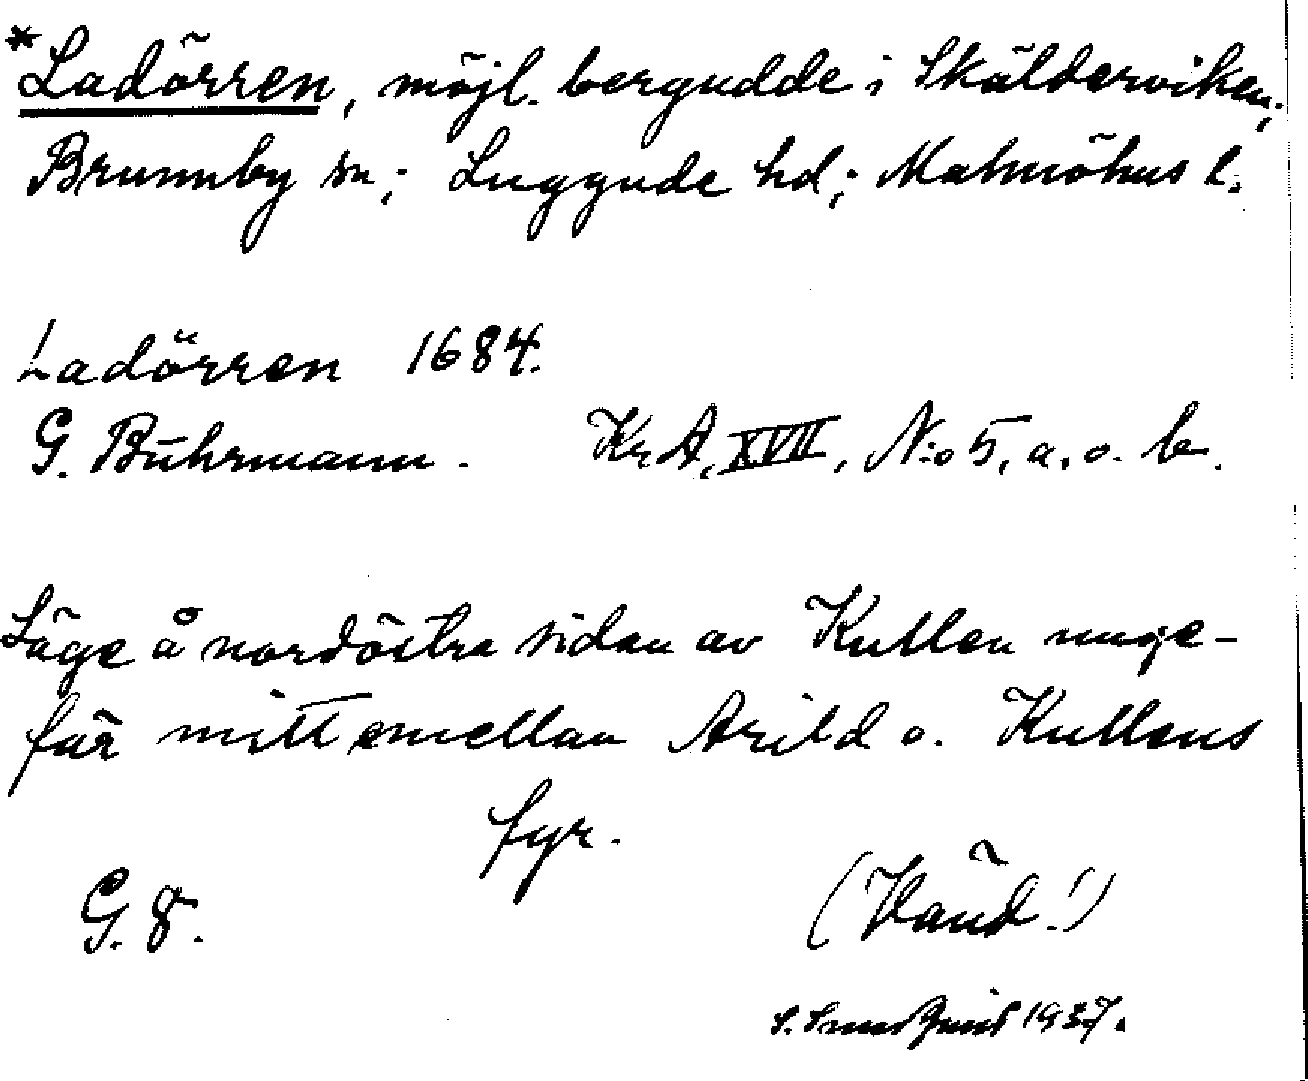 *Ladörren, möjl. bergudde i Skälderviken;
Brunnby sn; Luggude hd; Malmöhus l.
Ladörren 1684.
G. Buhrmann. KrA, XVII, N:o 5, a. o. b.
Läge å nordöstra sidan av Kullen unge-
fär mitt emellan Arild o. Kullens
fyr.
G. 8. (Händ!)
1937.